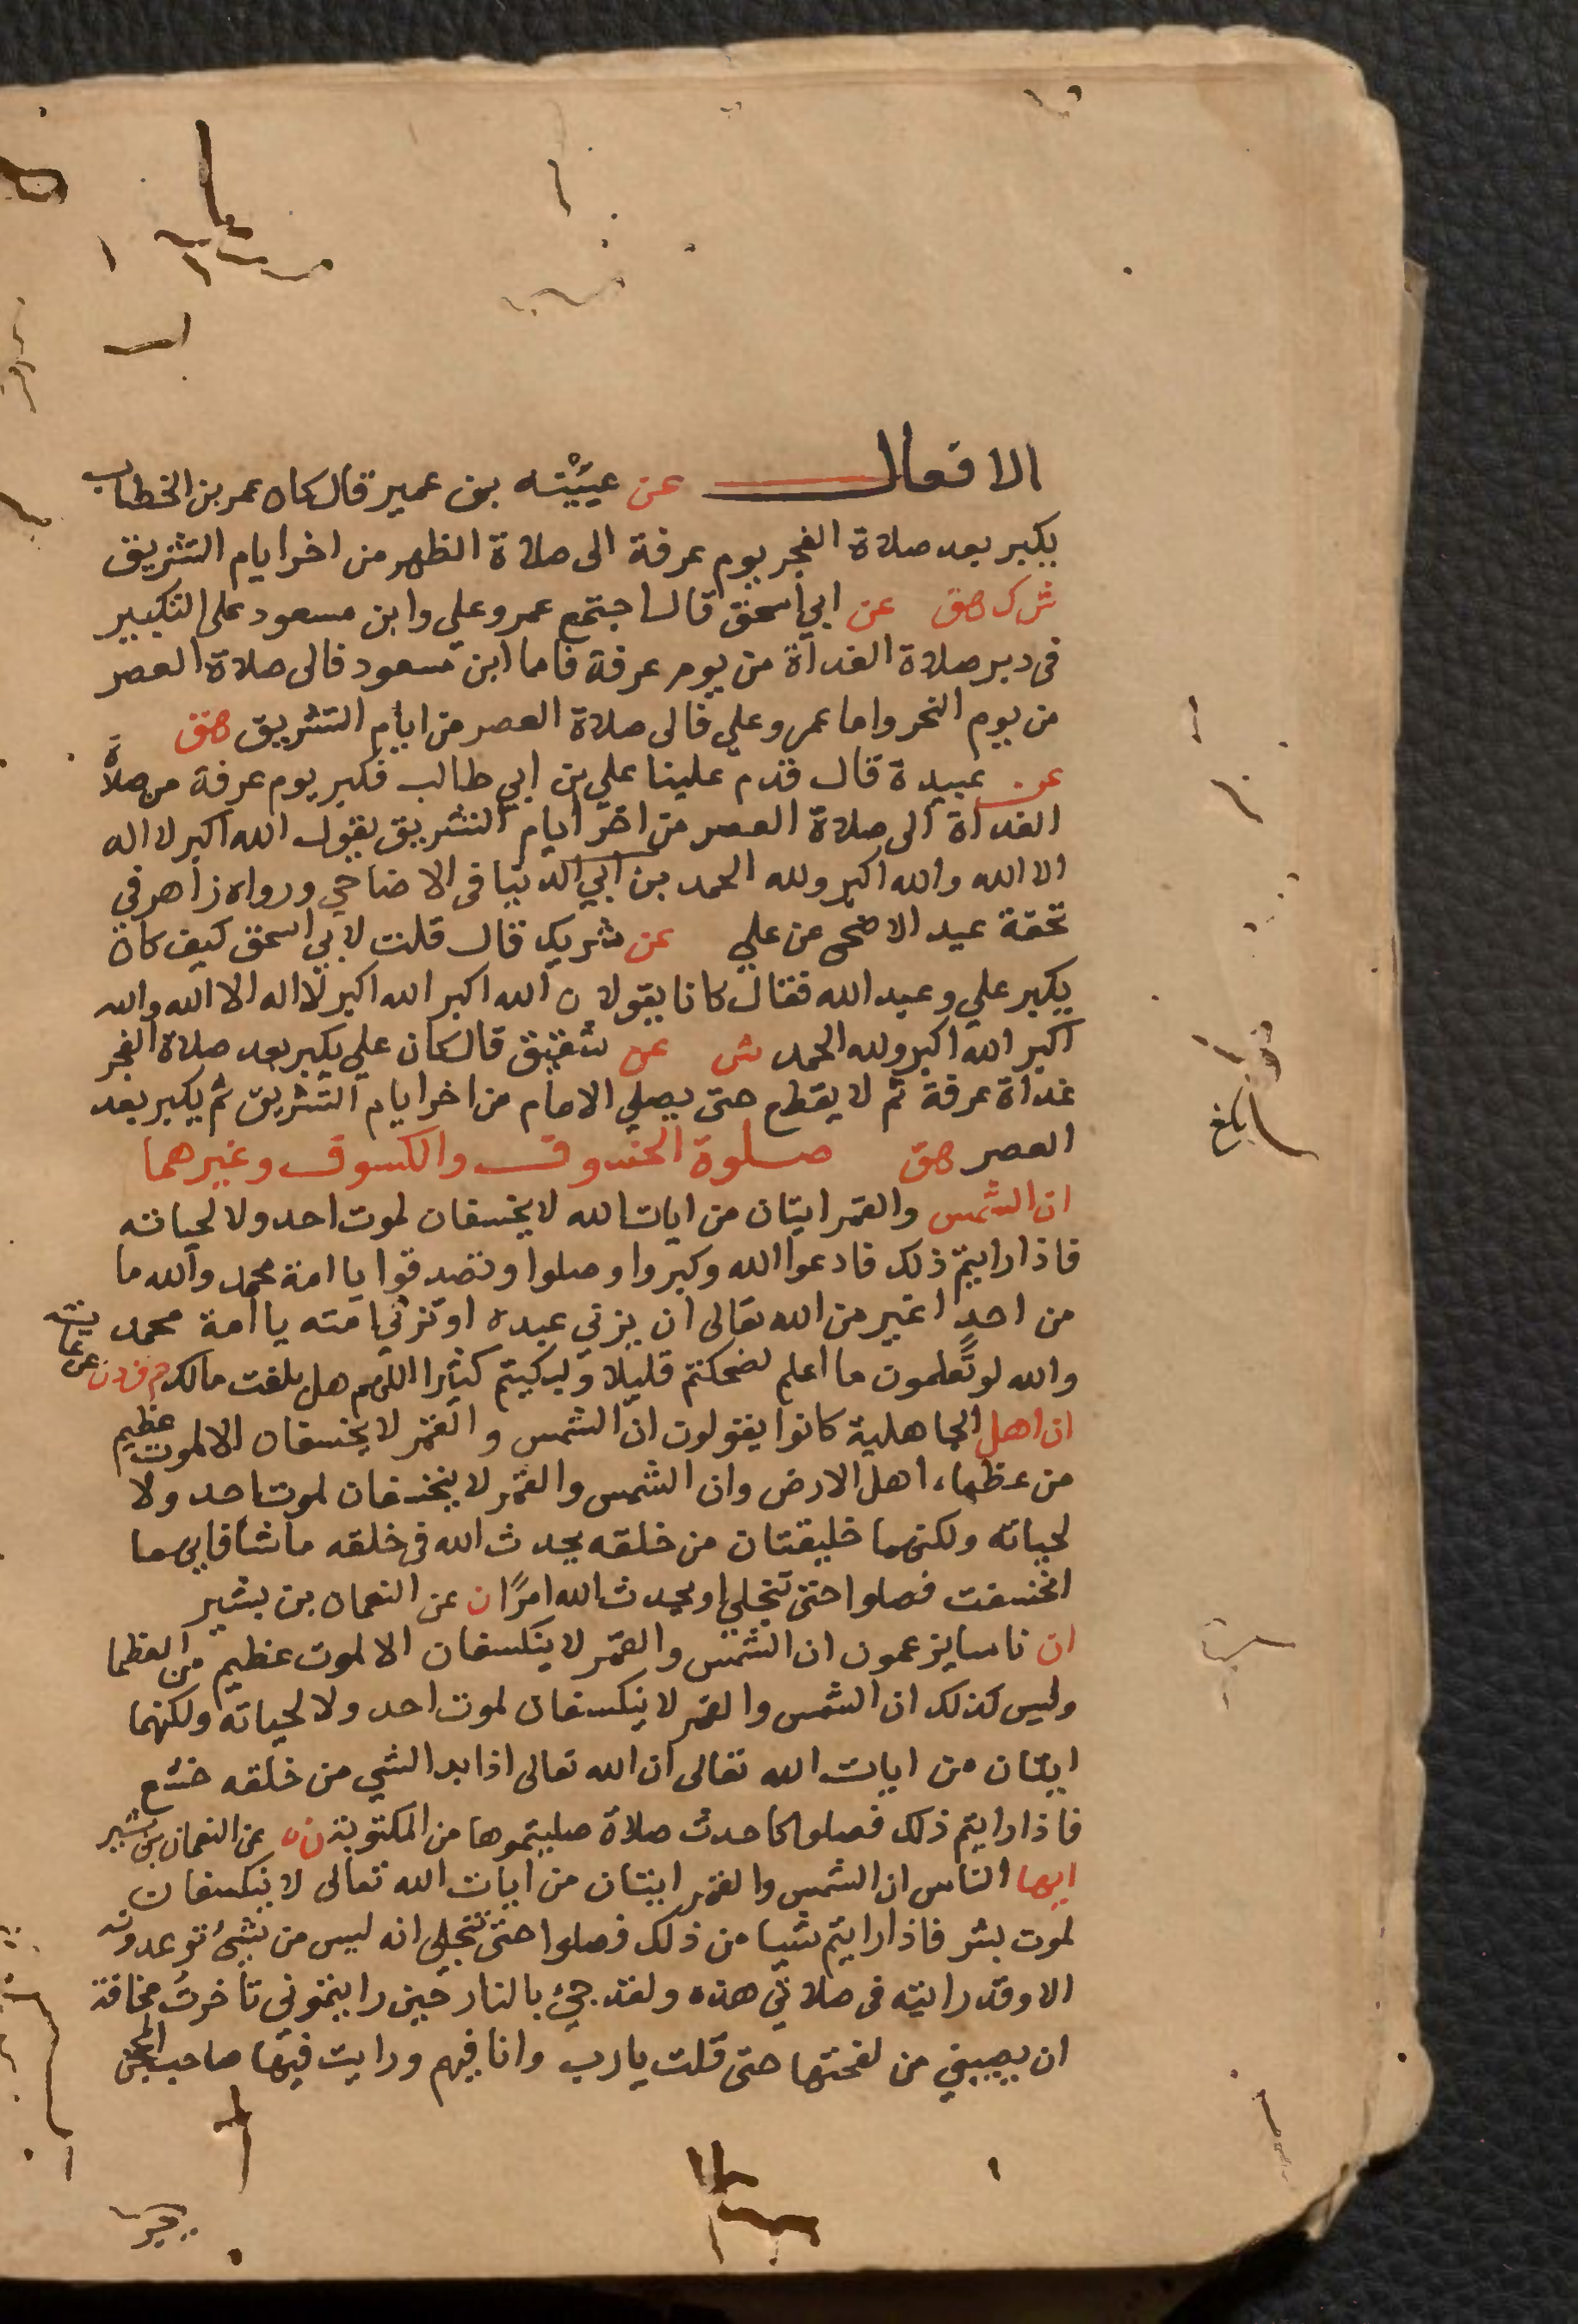 الافعال عن عيينه بن عمير قال كان عمر بن الخطاب
يكبر بعد صلاة الفجر يوم عرفة الى صلاة الظهر من اخر ايام التشريق
ش ك هق عن ابي اسحق قال اجتمع عمر وعلي وابن مسعود على التكبير
في دبر صلاة الغداة من يوم عرفة فاما ابن مسعود فالى صلاة العصر
من يوم النحر واما عمر وعلي فالى صلاة العصر من ايام التشريق هق
عن عبيدة قال قدم علينا علي بن ابي طالب فكبر يوم عرفة من صلاة
الغداة الى صلاة العصر من اخر ايام التشريق يقول الله اكبر لا اله
الا الله والله اكبر ولله الحمد بن ابي الدنيا في الاضاحي ورواه زاهر في
تحفة عيد الاضحى عن علي عن شريك قال قلت لابي اسحق كيف كان
يكبر علي وعبد الله فقال كانا يقولان الله اكبر الله اكبر لا اله الا الله والله
اكبر الله اكبر ولله الحمد ش عن شقيق قال كان علي يكبر بعد صلاة الفجر
غداة عرفة ثم لا يقطع حتى يصلي الامام من اخر ايام التشريق ثم يكبر بعد
العصر هق صلوة الخسوف والكسوف وغيرهما
ان الشمس والقمر ايتان من ايات الله لا يخسفان لموت احد ولا لحياته
فاذا رايتم ذلك فادعوا الله وكبروا وصلوا وتصدقوا يا امة محمد والله ما
من احد اغير من الله تعالى ان يزني عبده او تزني امته يا امة محمد
والله لو تعلمون ما اعلم لضحكتم قليلا ولبكيتم كثيرا اللهم هل بلغت مالك حم ق د ن عن عايشه
ان اهل الجاهلية كانوا يقولون ان الشمس والقمر لا يخسفان الا لموت عظيم
من عظماء اهل الارض وان الشمس والقمر لا ينخسفان لموت احد ولا
لحياته ولكنهما خليقتان من خلقه يحدث الله في خلقه ما شا فايهما
انخسفت فصلوا حتى تنجلي او يحدث الله امرًا ن عن النعمان بن بشير
ان ناسا يزعمون ان الشمس والقمر لا ينكسفان الا لموت عظيم من العظما
وليس كذلك ان الشمس والقمر لا ينكسفان لموت احد ولا لحياته ولكنهما
ايتان من ايات الله تعالى ان الله تعالى اذا بدا لشي من خلقه خشع
فاذا رايتم ذلك فصلوا كاحدث صلاة صليتموها من المكتوبة ن ه عن النعمان بن بشير
ايها الناس ان الشمس والقمر ايتان من ايات الله تعالى لا ينكسفان
لموت بشر فاذا رايتم شيا من ذلك فصلوا حتى تنجلي انه ليس من شيء توعدونه
الا وقد رايته في صلاتي هذه ولقد جيء بالنار حين رايتموني تأخرت مخافة
ان يصيبني من لفحتها حتى قلت يا رب وانا فيهم ورايت فيها صاحب المحجن
بلغ